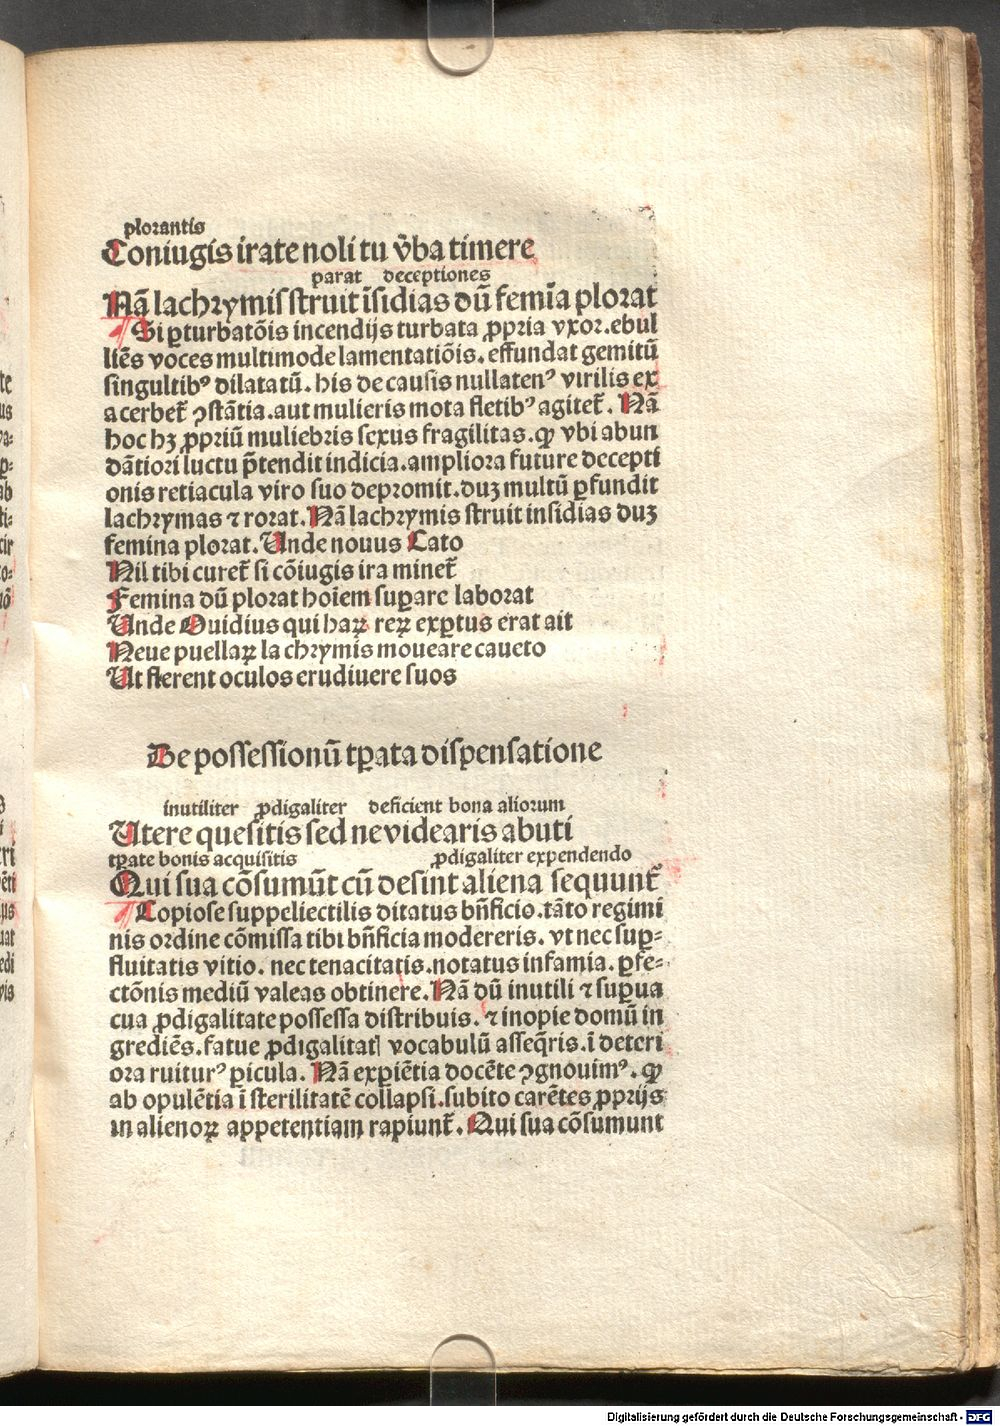 plorantis
Coniugis irate noli tu v̄ba timere
parat deceptiones
Nā lachrymis struit īsidias dū femīa plorat
¶ Si ꝑturbatōis incendijs turbata ꝓpria vxor. ebul
liēs voces multimode lamentatiōis. effundat gemitū
singultibꝰ dilatatū. his de causis nullatenꝰ virilis ex
acerbet̄ ꝯstātia. aut mulieris mota fletibꝰ agitet̄. Nā
hoc hꝫ ꝓpriū muliebris sexus fragilitas. ꝙ vbi abun
dātiori luctu p̄tendit indicia. ampliora future decepti
onis retiacula viro suo depromit. duꝫ multū ꝑfundit
lachrymas ⁊ rorat. Nā lachrymis struit insidias duꝫ
femina plorat. Unde nouus Cato
Nil tibi curet̄ si cōiugis ira minet̄
Femina dū plorat hoīem suꝑare laborat
Unde Ouidius qui haꝝ reꝝ exꝑtus erat ait
Neue puellaꝝ la chrymis moueare caueto
Ut flerent oculos erudiuere suos
De possessionū tꝑata dispensatione
inutiliter ꝓdigaliter deficient bona aliorum
Utere quesitis sed ne videaris abuti
tꝑate bonis acquisitis ꝓdigaliter expendendo
Qui sua cōsumūt cū desint aliena sequunt̄
¶ Copiose suppeliectilis ditatus bn̄ficio. tāto regimi
nis ordine cōmissa tibi bn̄ficia modereris. vt nec suꝑ⸗
fluitatis vitio. nec tenacitatis. notatus infamia. ꝑfe⸗
ctōnis mediū valeas obtinere. Nā dū inutili ⁊ suꝑua
cua ꝓdigalitate possessa distribuis. ⁊ inopie domū in
grediēs. fatue ꝓdigalitatꝭ vocabulū asseq̄ris. ī deteri
ora ruiturꝰ ꝑicula. Nā exꝑiētia docēte ꝯgnouimꝰ. ꝙ
ab opulētia ī sterilitatē collapsi. subito carētes ꝓprijs
in alienoꝝ appetentiam rapiunt̄. Qui sua cōsumunt
Digitalisierung gefördert durch die Deutsche Forschungsgemeinschaft - DFG